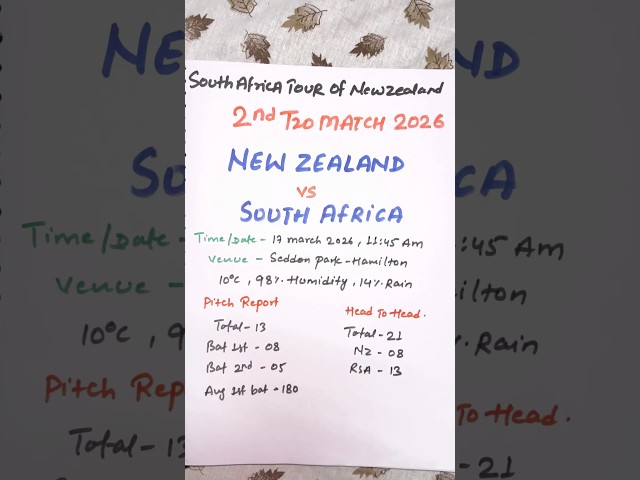 South Africa Tour of Newzealand
2nd T20 MATCH 2026
NEW ZEALAND
VS
SOUTH AFRICA
Time/Date - 17 march 2026, 11:45 Am
Venue - Seddon Park - Hamilton
10°C, 98% Humidity, 14% Rain
Pitch Report
Total - 13
Bat 1st - 08
Bat 2nd - 05
Avg 1st bat - 180
Head To Head.
Total - 21
NZ - 08
RSA - 13